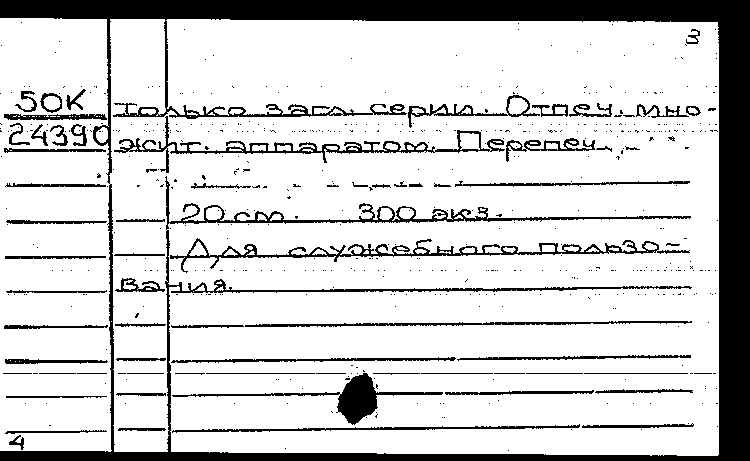 3
50К только загл. серии. Отпеч. мно-
24390 жит. аппаратом. Перепеч.
20 см. 300 экз.
Для служебного пользо-
вания.
4